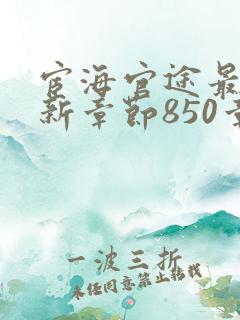 宦海官途最
新章节850章
一波三折
未经同意禁止转载